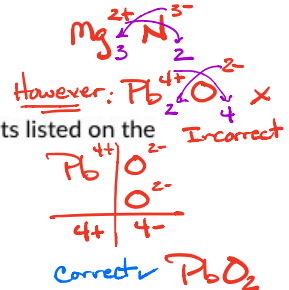 Mg₃²⁺ N₂³⁻
However: Pb₂⁴⁺ O₄²⁻ ×
ts listed on the Incorrect
Pb⁴⁺ O²⁻
O²⁻
4+ 4-
Correct ✓ PbO₂